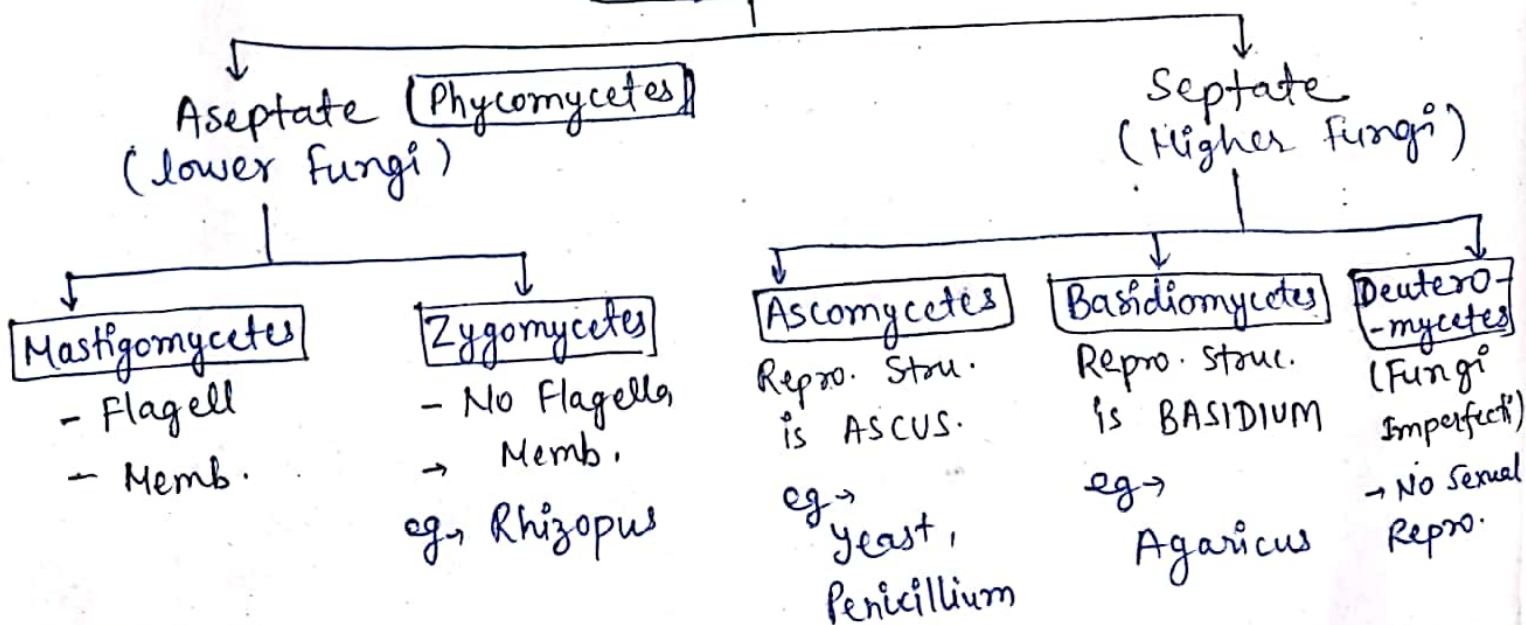 Aseptate Phycomycetes
(lower fungi)
Septate
(Higher fungi)
Mastigomycetes
- Flagell
- Memb.
Zygomycetes
- No Flagella
→ Memb.
eg → Rhizopus
Ascomycetes
Repro. Stru.
is ASCUS.
eg →
Yeast,
Penicillium
Basidiomycetes
Repro. Struc.
is BASIDIUM
eg →
Agaricus
Deutero-
-mycetes
(Fungi
Imperfecti)
→ No Sexual
Repro.